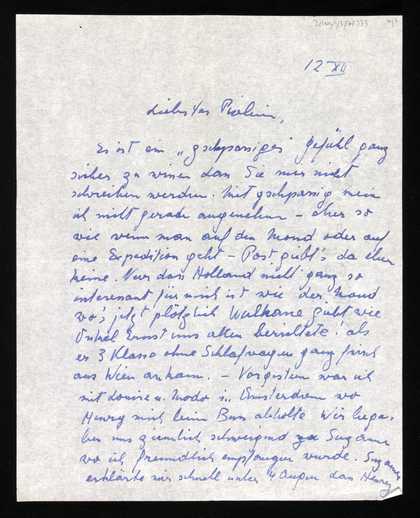 12 XII
Liebster
Es ist ein „gschpassiges Gefühl ganz
sicher zu wissen dass Sie mir nicht
schreiben werden. Mit gschpassig mein
ich nicht gerade angenehm – eher so
wie wenn man auf den Mond oder auf
eine Expedition geht – Post gibt's da eher
keine. Nur dass Holland nicht ganz so
interessant für mich ist wie der Mond
wo's jetzt plötzlich Vulkane gibt wie
Onkel Ernst uns allen berichtete! als
er 3 Klasse ohne Schlafwagen ganz frisch
aus Wien ankam. – Vorgestern war ich
mit Louise u. Modo in Amsterdam wo
Henry mich beim Bus abholte. Wir
uns ziemlich schweigend zu Suzanne
wo ich freundlich empfangen wurde. Suzanne
erklärte mir schnell unter 4 Augen dass Henry